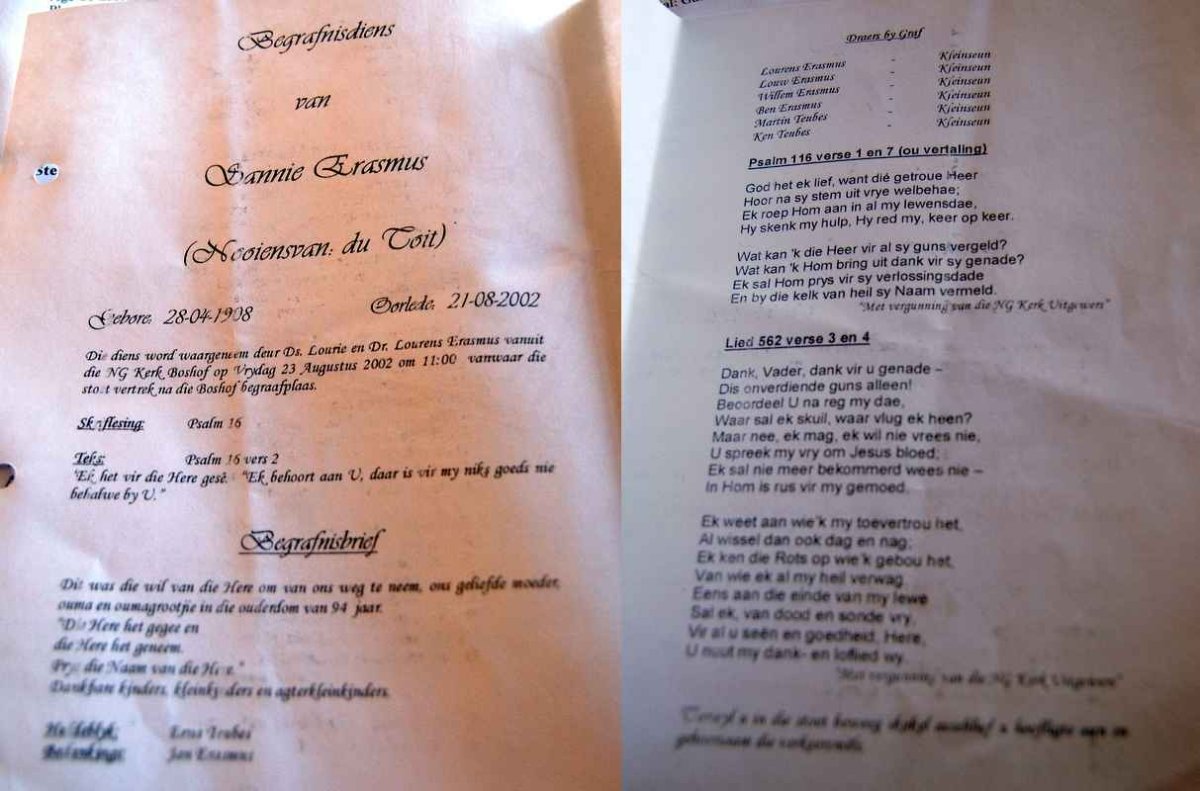 Begrafnisdiens
van
Sannie Erasmus
(Nooiensvan: du Toit)
Gebore: 28-04-1908 Oorlede: 21-08-2002
Die diens word waargeneem deur Ds. Lourie en Dr. Lourens Erasmus vanuit
die NG Kerk Boshof op Vrydag 23 Augustus 2002 om 11:00 vanwaar die
stoet vertrek na die Boshof begraafplaas.
Skriflesing: Psalm 16
Teks: Psalm 16 vers 2
"Ek het vir die Here gesê: "Ek behoort aan U, daar is vir my niks goeds nie
behalwe by U."
Begrafnisbrief
Dit was die wil van die Here om van ons weg te neem, ons geliefde moeder,
ouma en oumagrootjie in die ouderdom van 94 jaar.
"Die Here het gegee en
die Here het geneem.
Prys die Naam van die Here."
Dankbare kinders, kleinkinders en agterkleinkinders.
Huldeblyk: Erna Teubes
Bedankings: Jan Erasmus
ste
Draers by Graf
Lourens Erasmus - Kleinseun
Louw Erasmus - Kleinseun
Willem Erasmus - Kleinseun
Ben Erasmus - Kleinseun
Martin Teubes - Kleinseun
Ken Teubes - Kleinseun
Psalm 116 verse 1 en 7 (ou vertaling)
God het ek lief, want dié getroue Heer
Hoor na sy stem uit vrye welbehae;
Ek roep Hom aan in al my lewensdae,
Hy skenk my hulp, Hy red my, keer op keer.
Wat kan 'k die Heer vir al sy guns vergeld?
Wat kan 'k Hom bring uit dank vir sy genade?
Ek sal Hom prys vir sy verlossingsdade
En by die kelk van heil sy Naam vermeld.
"Met vergunning van die NG Kerk Uitgewers"
Lied 562 verse 3 en 4
Dank, Vader, dank vir u genade –
Dis onverdiende guns alleen!
Beoordeel U na reg my dae,
Waar sal ek skuil, waar vlug ek heen?
Maar nee, ek mag, ek wil nie vrees nie,
U spreek my vry om Jesus bloed;
Ek sal nie meer bekommerd wees nie –
In Hom is rus vir my gemoed.
Ek weet aan wie'k my toevertrou het,
Al wissel dan ook dag en nag;
Ek ken die Rots op wie'k gebou het,
Van wie ek al my heil verwag.
Eens aan die einde van my lewe
Sal ek, van dood en sonde vry,
Vir al u seën en goedheid, Here,
U nuut my dank- en loflied wy.
"Met vergunning van die NG Kerk Uitgewers"
u in die stoet beweeg